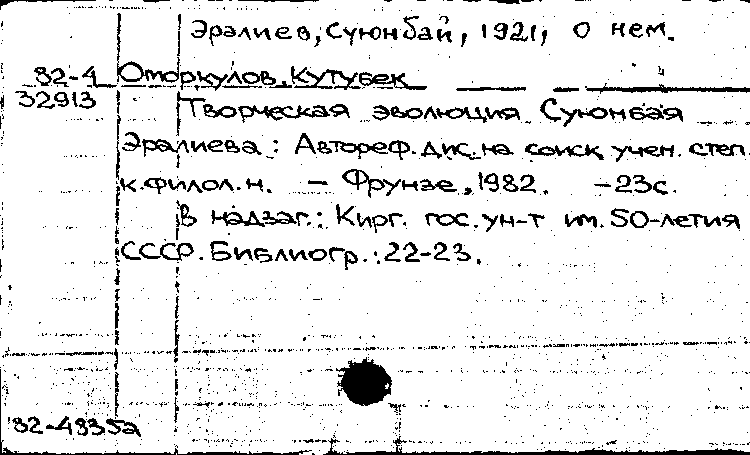 Эралиев, Суюнбай, 1921, о нем.
82-4 Оторкулов, Кутубек
32913
Творческая эволюция Суюнбая
Эралиева: Автореф. дис. на соиск. учен. степ.
к.филол.н. — Фрунзе, 1982. -23с.
В надзаг.: Кирг. гос. ун-т им. 50-летия
СССР. Библиогр.: 22-23.
82-4835а